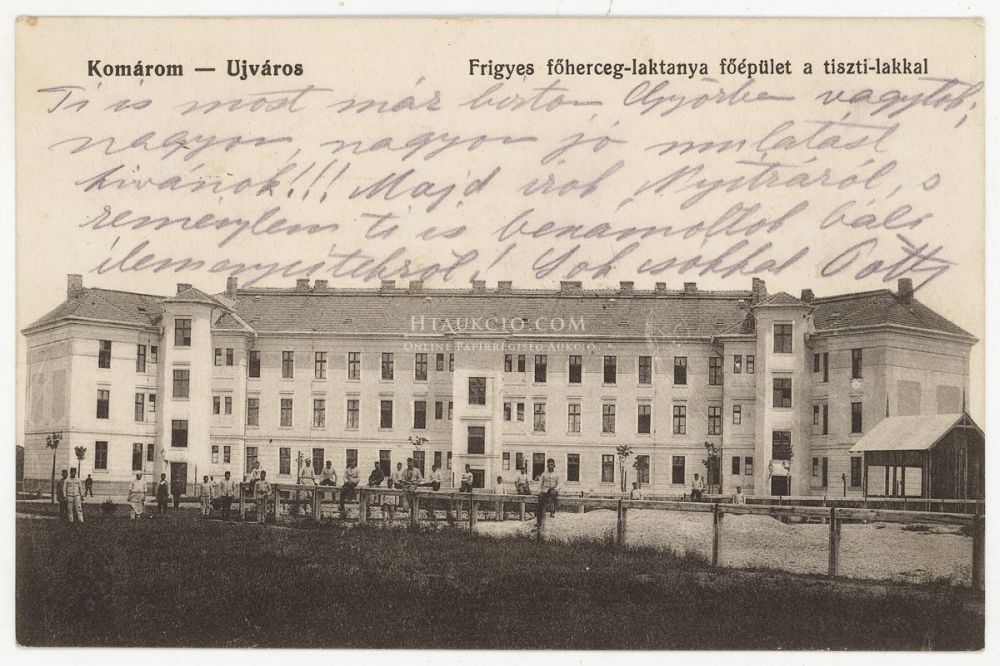 Komárom — Ujváros
Frigyes főherceg-laktanya főépület a tiszti-lakkal
Ti is most már bizton Győrben vagytok,
nagyon, nagyon jó mulatást
kivánok!!! Majd irok Nyitráról, s
remélylem ti is beszámoltok báli
élményeitekről! Sok csókkal Potty
HTAUKCIO.COM
ONLINE PAPÍRRÉGISÉG AUKCIÓ